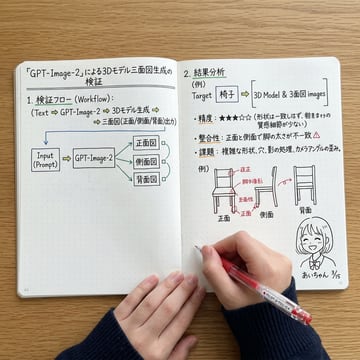 「GPT-Image-2」による3Dモデル三面図生成の
検証
1. 検証フロー (Workflow):
(Text ⇨ GPT-Image-2 ⇨ 3Dモデル生成 ⇨
⇨ 三面図(正面/側面/背面)出力)
Input
(Prompt)
GPT-Image-2
正面図
側面図
背面図
2. 結果分析
(例)
Target
椅子
3D Model & 3面図 images
・精度: ★★★☆☆ (形状は一致しはず、
質感細部が少ない)
・整合性: 正面と側面で脚の太さが不一致 ⚠
・課題: 複雑な形状、穴、影の処理、カメラアングルの歪み。
例)
正面
側面
背面
あいちゃん 3/15